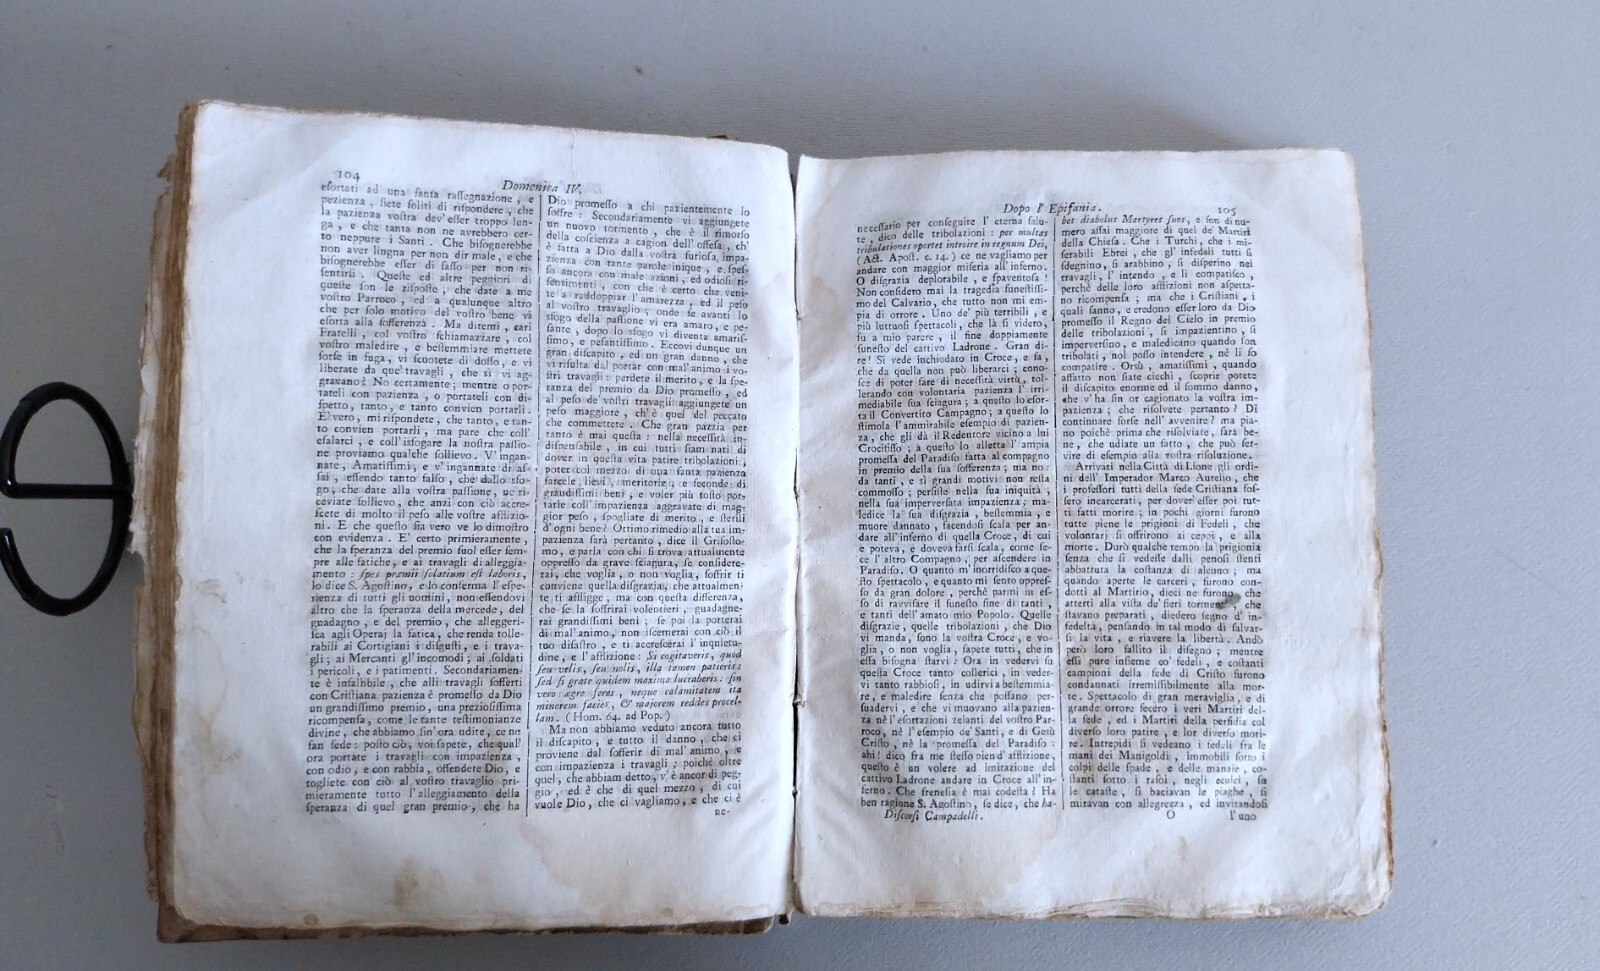 104
Domenica IV.
eſortati ad una ſanta raſſegnazione, e
pezienza, ſiete ſoliti di riſpondere, che
la pazienza voſtra dev'eſſer troppo lun-
ga, e che tanta non ne avrebbero cer-
to neppure i Santi. Che biſognerebbe
non aver lingua per non dir male, e che
biſognerebbe eſſer di ſaſſo per non ri-
ſentirſi. Queſte ed altre peggiori di
queſte ſon le riſpoſte, che date a me
voſtro Parroco, ed a qualunque altro
che per ſolo motivo del voſtro bene vi
eſorta alla ſofferenza. Ma ditemi, cari
Fratelli, col voſtro ſchiamazzare, col
voſtro maledire, e beſtemmiare mettete
forſe in fuga, vi ſcuotete di doſſo, e vi
liberate da que' travagli, che sì vi ag-
gravano? No certamente; mentre o por-
tateli con pazienza, o portateli con di-
ſpetto, tanto, e tanto convien portarli.
E' vero, mi riſpondete, che tanto, e tan-
to convien portarli, ma pare che coll'
eſalarci, e coll' isfogare la noſtra paſſio-
ne proviamo qualche ſollievo. V'ingan-
nate, Amatiſſimi, e v'ingannate di aſ-
ſai, eſſendo tanto falſo, che dallo sfo-
go, che date alla voſtra paſſione, ne ri-
ceviate ſollievo, che anzi con ciò accre-
ſcete di molto il peſo alle voſtre afflizio-
ni. E che queſto ſia vero ve lo dimoſtro
con evidenza. E' certo primieramente,
che la ſperanza del premio ſuol eſſer ſem-
pre alle fatiche, e ai travagli di alleggia-
mento: ſpes præmii ſolatium eſt laboris,
lo dice S. Agoſtino, e lo conferma l'eſpe-
rienza di tutti gli uomini, non eſſendovi
altro che la ſperanza della mercede, del
guadagno, e del premio, che alleggeri-
ſca agli Operaj la fatica, che renda tolle-
rabili ai Cortigiani i diſguſti, e i trava-
gli; ai Mercanti gl'incomodi; ai ſoldati
i pericoli, e i patimenti. Secondariamen-
te è infallibile, che alli travagli ſofferti
con Criſtiana pazienza è promeſſo da Dio
un grandiſſimo premio, una prezioſiſſima
ricompenſa, come le tante teſtimonianze
divine, che abbiamo ſin' ora udite, ce ne
fan fede: poſto ciò, voi ſapete, che qual'
ora portate i travagli con impazienza,
con odio, e con rabbia, offendete Dio, e
togliete con ciò al voſtro travaglio pri-
mieramente tutto l'alleggiamento della
ſperanza di quel gran premio, che ha
Dio promeſſo a chi pazientemente lo
ſoffre: Secondariamente vi aggiungete
un nuovo tormento, che è il rimorſo
della coſcienza a cagion dell' offeſa, ch'
è fatta a Dio dalla voſtra furioſa impa-
zienza con tante parole inique, e ſpeſ-
ſo ancora con male azioni, ed odioſi ri-
ſentimenti, con che è certo che veni-
te a raddoppiar l'amarezza, ed il peſo
al voſtro travaglio; onde ſe avanti lo
sfogo della paſſione vi era amaro, e pe-
ſante, dopo lo sfogo vi diventa amariſ-
ſimo, e peſantiſſimo. Eccovi dunque un
gran diſcapito, ed un gran danno, che
vi riſulta dal portar con mal' animo i vo-
ſtri travagli: perdete il merito, e la ſpe-
ranza del premio da Dio promeſſo, ed
al peſo de' voſtri travagli aggiungete un
peſo maggiore, ch' è quel del peccato
che commettete. Che gran pazzia per
tanto è mai queſta: nella neceſſità in-
diſpenſabile, in cui tutti ſiam nati di
dover in queſta vita patire tribolazioni,
poter col mezzo di una ſanta pazienza
farcele lievi, meritorie, e feconde di
grandiſſimi beni, e voler più toſto por-
tarle coll'impazienza aggravate di mag-
gior peſo, ſpogliate di merito, e ſterili
d'ogni bene? Ottimo rimedio alla tua im-
pazienza ſarà pertanto, dice il Griſoſto-
mo, e parla con chi ſi trova attualmente
oppreſſo da grave ſciagura, ſe conſidere-
rai, che voglia, o non voglia, ſoffrir ti
conviene quella diſgrazia, che attualmen-
te ti affligge, ma con queſta differenza,
che ſe la ſoffrirai volentieri, guadagne-
rai grandiſſimi beni; ſe poi la porterai
di mal'animo, non iſcemerai con ciò il
tuo diſaſtro, e ti accreſcerai l'inquietu-
dine, e l'afflizione: Si cogitaveris, quod
ſeu velis, ſeu nolis, illa tamen patieris:
ſed ſi grate quidem maxima lucraberis: ſin
vero ægre feras, neque calamitatem ita
minorem facies, & majorem reddes procel-
lam. (Hom. 64. ad Pop.)
Ma non abbiamo veduto ancora tutto
il diſcapito, e tutto il danno, che ci
proviene dal ſofferir di mal'animo, e
con impazienza i travagli; poichè oltre
quel, che abbiam detto, v'è ancor di peg-
gio, ed è che di quel mezzo, di cui
vuole Dio, che ci vagliamo, e che ci è
ne-
Dopo l' Epifania.
105
neceſſario per conſeguire l'eterna ſalu-
te, dico delle tribolazioni: per multas
tribulationes oportet introire in regnum Dei,
(Act. Apoſt. c. 14.) ce ne vagliamo per
andare con maggior miſeria all'inferno.
O diſgrazia deplorabile, e ſpaventoſa!
Non conſidero mai la tragedia funeſtiſſi-
mo del Calvario, che tutto non mi em-
pia di orrore. Uno de' più terribili, e
più luttuoſi ſpettacoli, che là ſi videro,
fu a mio parere, il fine doppiamente
funeſto del cattivo Ladrone. Gran di-
re! Si vede inchiodato in Croce, e ſa,
che da quella non può liberarci; cono-
ſce di poter fare di neceſſità virtù, tol-
lerando con volontaria pazienza l' irri-
mediabile ſua ſciagura; a queſto lo eſor-
ta il Convertito Compagno; a queſto lo
ſtimola l'ammirabile eſempio di pazien-
za, che gli dà il Redentore vicino a lui
Crocifiſſo; a queſto lo alletta l'ampia
promeſſa del Paradiſo fatta al compagno
in premio della ſua ſofferenza; ma no:
da tanti, e sì grandi motivi non reſta
commoſſo; perſiſte nella ſua iniquità,
nella ſua imperverſata impazienza; ma-
ledice la ſua diſgrazia, beſtemmia, e
muore dannato, facendoſi ſcala per an-
dare all'inferno di quella Croce, di cui
e poteva, e doveva farſi ſcala, come fe-
ce l'altro Compagno, per aſcendere in
Paradiſo. O quanto m'inorridiſco a que-
ſto ſpettacolo, e quanto mi ſento oppreſ-
ſo da gran dolore, perchè parmi in eſ-
ſo di ravviſare il funeſto fine di tanti,
e tanti dell'amato mio Popolo. Quelle
diſgrazie, quelle tribolazioni, che Dio
vi manda, ſono la voſtra Croce, e vo-
glia, o non voglia, ſapete tutti, che in
eſſa biſogna ſtarvi? Ora in vedervi ſu
queſta Croce tanto collerici, in veder-
vi tanto rabbioſi, in udirvi a beſtemmia-
re, e maledire ſenza che poſſano per-
ſuadervi, e che vi muovano alla pazien-
za nè l'eſortazioni zelanti del voſtro Par-
roco, nè l'eſempio de' Santi, e di Gesù
Criſto, nè la promeſſa del Paradiſo:
ahi! dico fra me ſteſſo pien d'afflizione,
queſto è un volere ad imitazione del
cattivo Ladrone andare in Croce all'in-
ferno. Che freneſia è mai codeſta? Ha
ben ragione S. Agoſtino, ſe dice, che ha-
Diſcorſi Campadelli.
bet diabolus Martyres ſuos, e ſon di nu-
mero aſſai maggiore di quel de' Martiri
della Chieſa. Che i Turchi, che i mi-
ſerabili Ebrei, che gl' infedeli tutti ſi
ſdegnino, ſi arabbino, ſi diſperino nei
travagli, l'intendo, e li compatiſco,
perchè delle loro afflizioni non aſpetta-
no ricompenſa; ma che i Criſtiani, i
quali ſanno, e credono eſſer loro da Dio
promeſſo il Regno del Cielo in premio
delle tribolazioni, ſi impazientino, ſi
imperverſino, e maledicano quando ſon
tribolati, nol poſſo intendere, nè li ſo
compatire. Orsù, amatiſſimi, quando
affatto non ſiate ciechi, ſcoprir potete
il diſcapito enorme ed il ſommo danno,
che v'ha ſin or cagionato la voſtra im-
pazienza; che riſolvete pertanto? Di
continuare forſe nell' avvenire? ma pia-
no poichè prima che riſolviate, ſarà be-
ne, che udiate un fatto, che può ſer-
vire di eſempio alla voſtra riſoluzione.
Arrivati nella Città di Lione gli ordi-
ni dell' Imperador Marco Aurelio, che
i profeſſori tutti della fede Criſtiana foſ-
ſero incarcerati, per dover' eſſer poi tut-
ti fatti morire; in pochi giorni furono
tutte piene le prigioni di Fedeli, che
volontarj ſi offrirono ai ceppi, e alla
morte. Durò qualche tempo la prigionia
ſenza che ſi vedeſſe dalli penoſi ſtenti
abbattuta la coſtanza di alcuno; ma
quando aperte le carceri, furono con-
dotti al Martirio, dieci ne furono, che
atterti alla viſta de' fieri tormen , che
ſtavano preparati, diedero ſegno d' in-
fedeltà, penſando in tal modo di ſalvar-
ſi la vita, e riavere la libertà. Andò
però loro fallito il diſegno; mentre
eſſi pure inſieme co' fedeli, e coſtanti
campioni della fede di Criſto furono
condannati irremiſſibilmente alla mor-
te. Spettacolo di gran meraviglia, e di
grande orrore fecero i veri Martiri del-
la fede, ed i Martiri della perfidia col
diverſo loro patire, e lor diverſo mori-
re. Intrepidi ſi vedeano i fedeli fra le
mani dei Manigoldi, immobili ſotto i
colpi delle ſpade, e delle manaie, co-
ſtanti ſotto i raſoi, negli eculei, ſu
le cataſte, ſi baciavan le piaghe, ſi
miravan con allegrezza, ed invitandoſi
O
l'uno